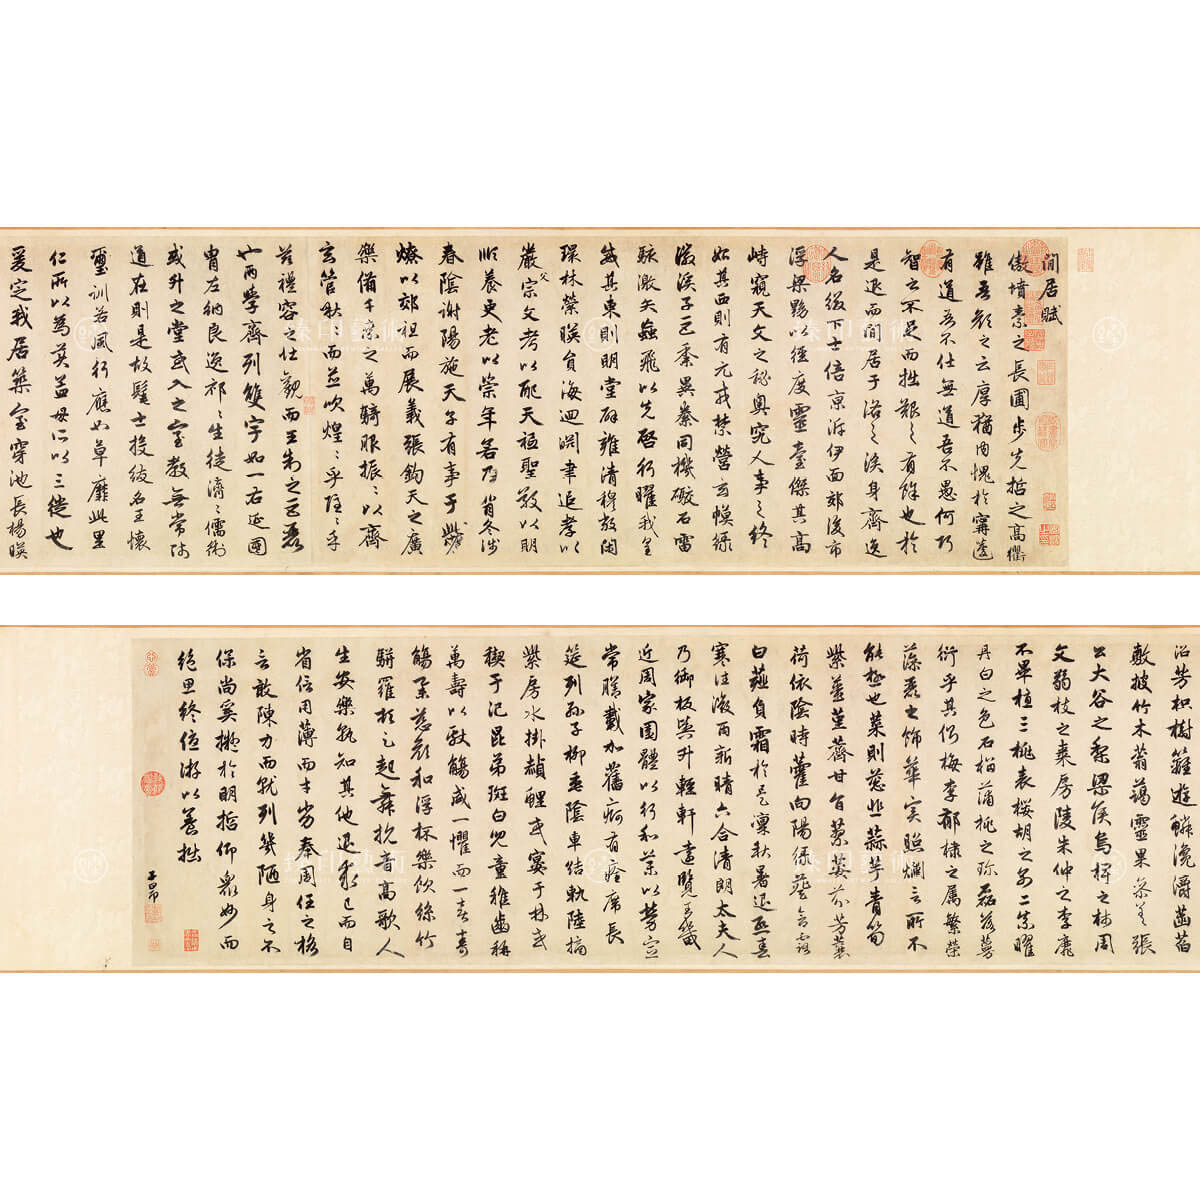 閒居賦
傲墳素之長圃步先哲之高衢
雖吾顏之云厚猶內愧於寗蘧
有道吾不仕無道吾不愚何巧
智之不足而拙艱之有餘也於
是退而閒居于洛之涘身齊逸
人名綴下士倍京泝伊面郊後市
浮梁黝以徑度靈臺傑其高
峙窺天文之秘奧究人事之終
始其西則有元戎禁營玄幙綠
徽溪子巨黍異絭同機礮石雷
駭激矢蝱飛以先啓行曜我皇
威其東則明堂辟雍清穆敞閑
環林縈暎負海迴淵聿追孝以
嚴父宗文考以配天祗聖敬以明
順養更老以崇年若乃背冬涉
春陰謝陽施天子有事于柴
燎以郊祖而展義張鈞天之廣
樂備千乘之萬騎服振々以齊
玄管啾々而並吹煌々乎隱々乎
茲禮容之壯觀而王制之巨麗
也兩學齊列雙宇如一右延國
冑左納良逸祁々生徒濟々儒術
或升之堂或入之室教無常師
道在則是故髦士投紱名王懷
璽訓若風行應如草靡此里
仁所以為美孟母所以三徙也
爰定我居築室穿池長楊暎
沼芳枳樹籬遊鱗瀺灂菡萏
敷披竹木蓊藹靈果參差張
公大谷之梨梁侯烏椑之柿周
文弱枝之棗房陵朱仲之李靡
不畢植三桃表櫻胡之別二柰曜
丹白之色石榴蒲桃之珍磊落蔓
衍乎其側梅李郁棣之屬繁榮
藻麗之飾華實照爛言所不
能極也菜則蔥韭蒜芋青筍
紫薑堇薺甘旨蓼荾芬芳蘘
荷依陰時藿向陽綠葵含露
白薤負霜於是凜秋暑退熙春
寒往微雨新晴六合清朗太夫人
乃御板輿升輕軒遠覽王畿
近周家園體以行和藥以勞宣
常膳載加舊痾有痊席長
筵列孫子柳垂陰車結軌陸摘
紫房水掛赬鯉或宴于林或
禊于汜昆弟斑白兒童稚齒稱
萬壽以獻觴咸一懼而一喜壽
觴舉慈顏和浮杯樂飲絲竹
駢羅頓足起舞抗音高歌人
生安樂孰知其他退求己而自
省信用薄而才劣奉周任之格
言敢陳力而就列幾陋身之不
保尚奚擬於明哲仰衆妙而
絕思終優游以養拙
子昂
臻印藝術